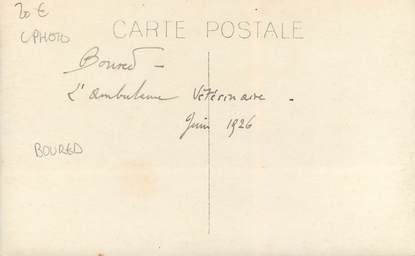 20 €
CPHOTO
CARTE POSTALE
Boured -
L'ambulance Vétérinaire -
Juin 1926
BOURED